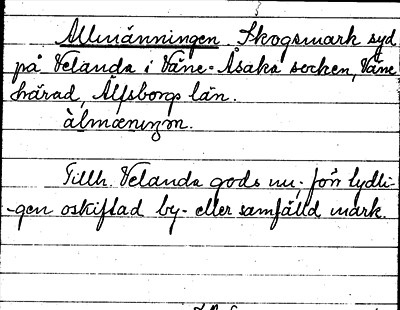 Allmänningen Skogsmark syd
på Velanda i Väne-Åsaka socken, Väne
härad, Älfsborgs län.
àlmæningən.
Tillh. Velanda gods nu, förr tydli-
-gen oskiftad by- eller samfälld mark.